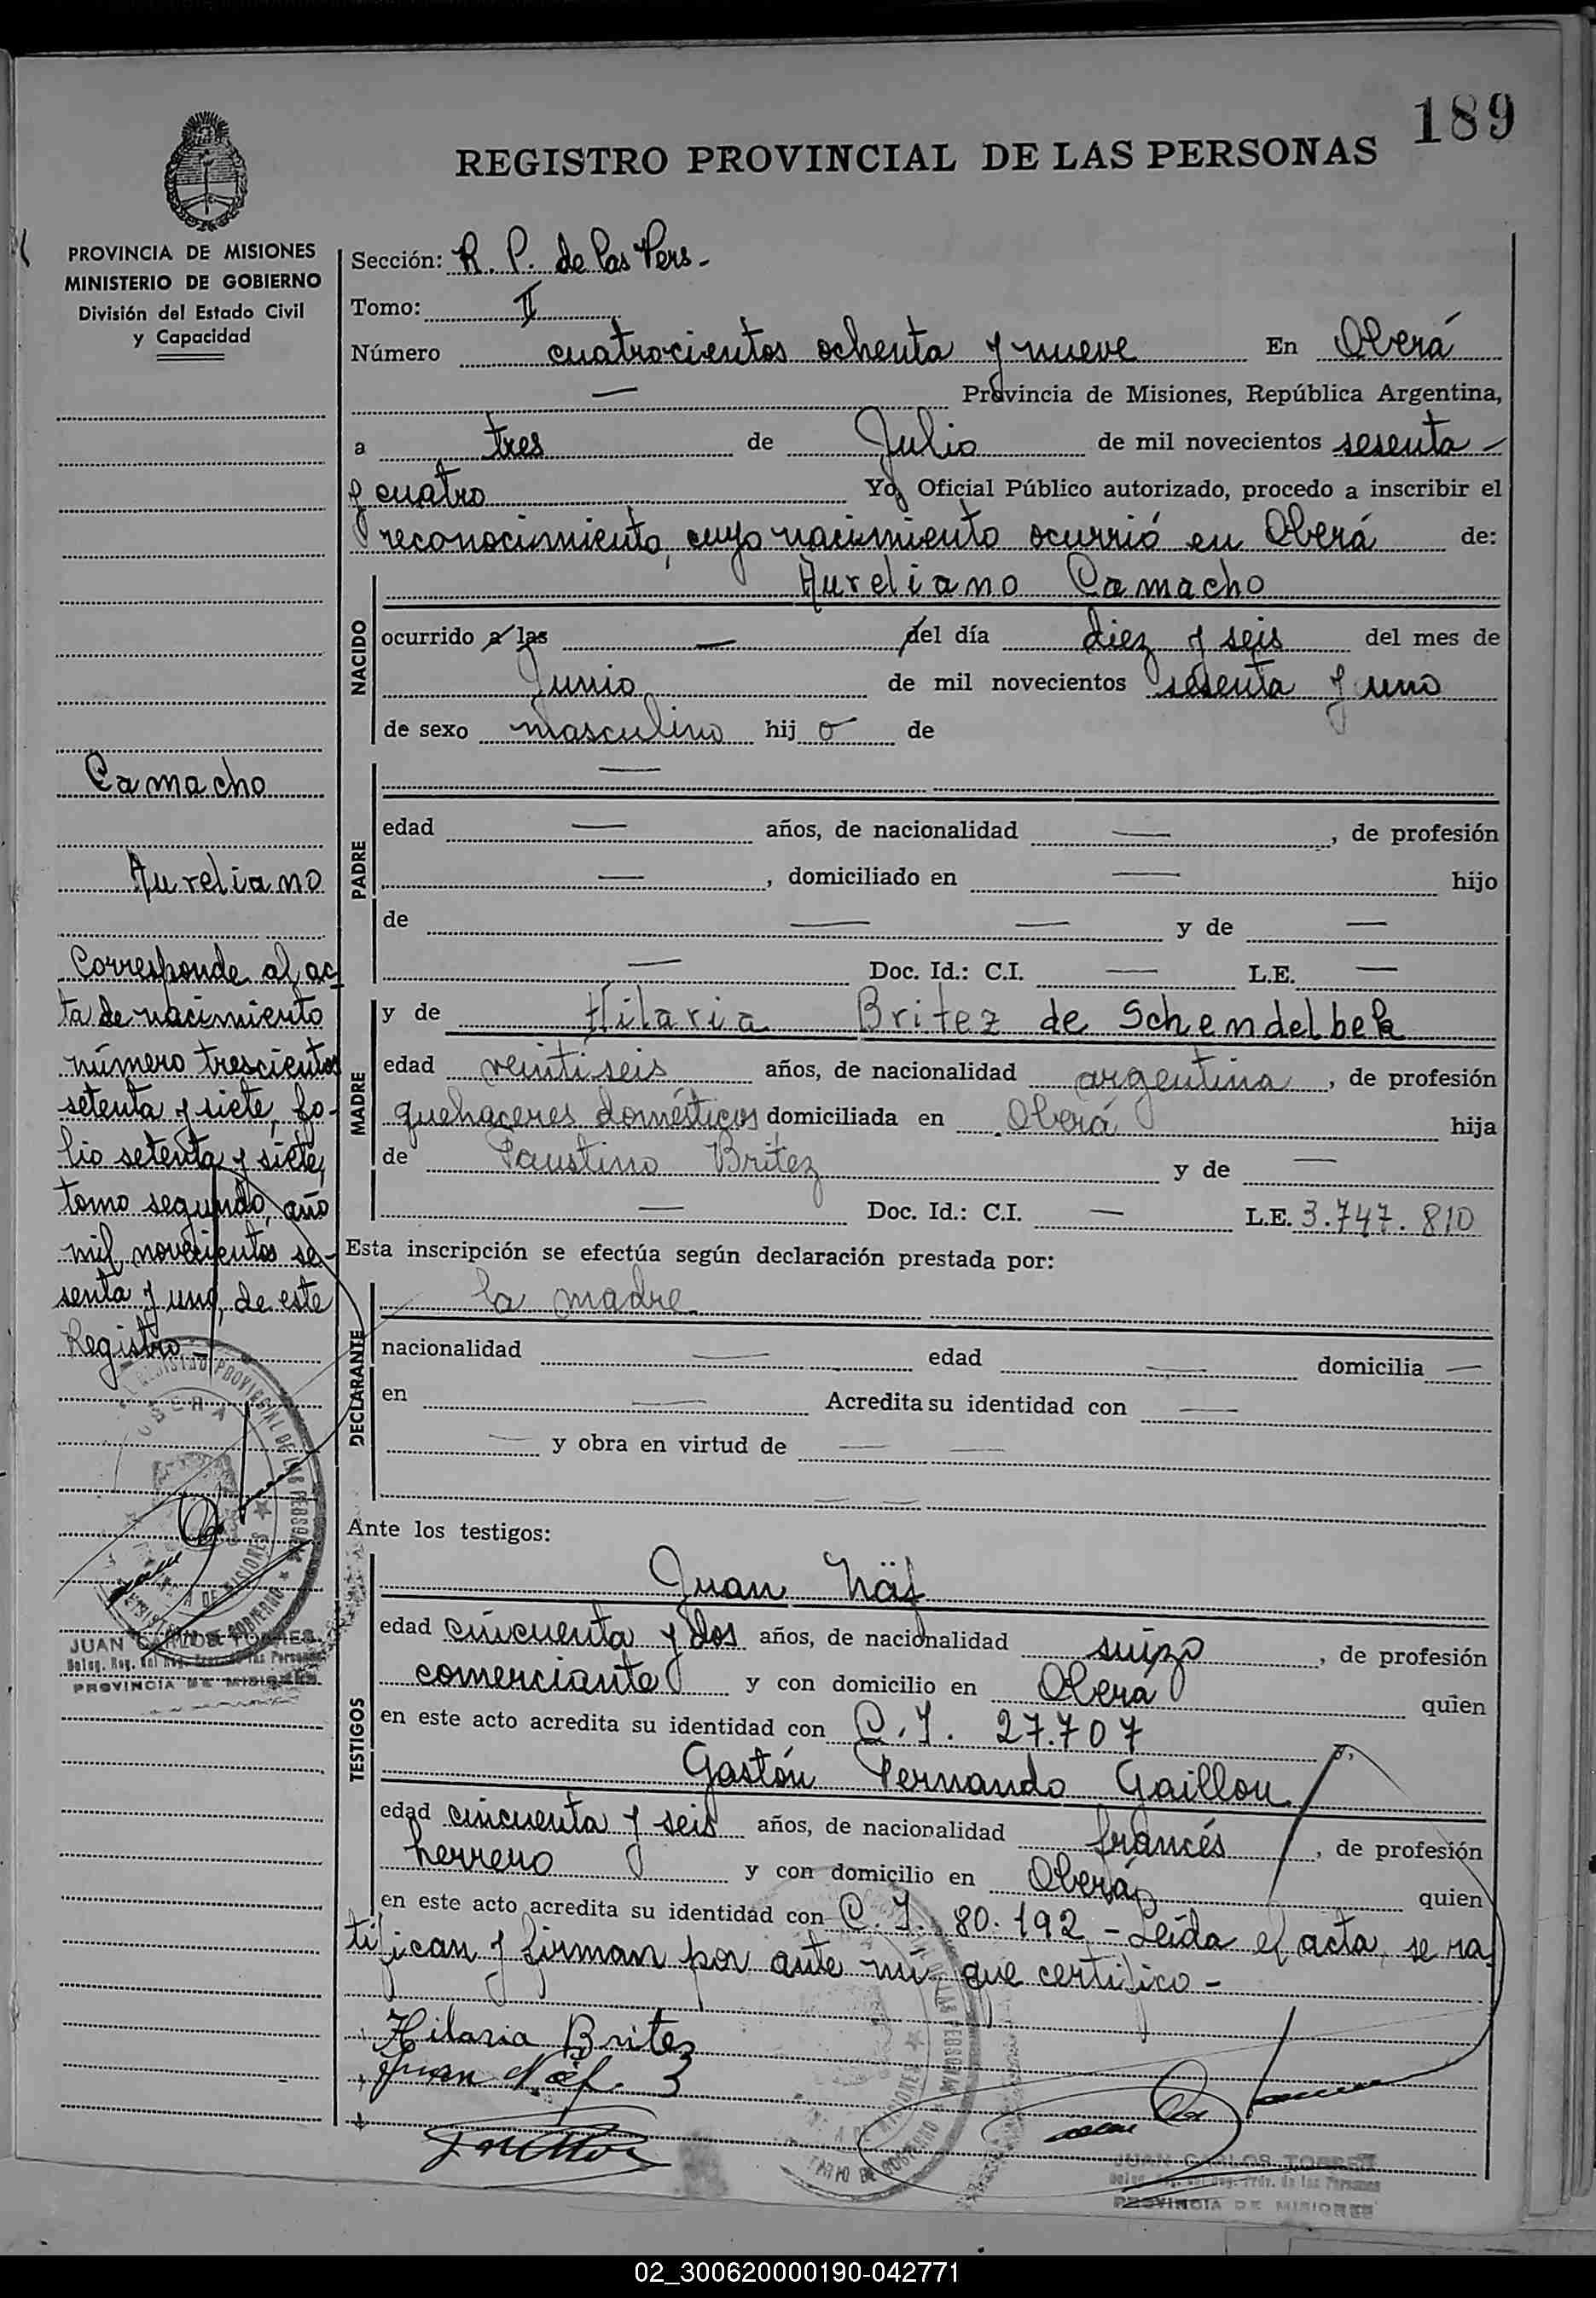 189
REGISTRO PROVINCIAL DE LAS PERSONAS
PROVINCIA DE MISIONES
MINISTERIO DE GOBIERNO
División del Estado Civil
y Capacidad
Camacho
Aureliano
Corresponde al ac-
ta de nacimiento
número trescientos
setenta y siete, fo-
lio setenta y siete,
tomo segundo, año
mil novecientos se-
senta y uno, de este
Registro -
JUAN CARLOS TORRES
PROVINCIA DE MISIONES
Sección: R. P. de las Pers-
Tomo: II
Número cuatrocientos ochenta y nueve En Oberá
— Provincia de Misiones, República Argentina,
a tres de Julio de mil novecientos sesenta -
y cuatro Yo, Oficial Público autorizado, procedo a inscribir el
reconocimiento, cuyo nacimiento ocurrió en Oberá de:
NACIDO
Aureliano Camacho
ocurrido a las — del día diez y seis del mes de
Junio de mil novecientos sesenta y uno
de sexo masculino hijo de
PADRE
—
edad — años, de nacionalidad —, de profesión
—, domiciliado en — hijo
de — — y de —
— Doc. Id.: C.I. — L.E. —
MADRE
y de Hilaria Britez de Schendelbek
edad veintiseis años, de nacionalidad argentina, de profesión
quehaceres domésticos domiciliada en Oberá hija
de Faustino Britez y de —
— Doc. Id.: C.I. — L.E. 3.747.810
Esta inscripción se efectúa según declaración prestada por:
DECLARANTE
la madre
nacionalidad — edad — domicilia —
en — Acredita su identidad con —
— y obra en virtud de — —
— —
Ante los testigos:
TESTIGOS
Juan Näf
edad cincuenta y dos años, de nacionalidad suizo, de profesión
comerciante y con domicilio en Oberá quien
en este acto acredita su identidad con C.I. 27.707
Gastón Fernando Gaillou
edad cincuenta y seis años, de nacionalidad francés, de profesión
herrero y con domicilio en Oberá quien
en este acto acredita su identidad con C.I. 80.192 - Leída el acta, se ra-
tifican y firman por ante mi que certifico -
Hilaria Britez
Juan Näf
JUAN CARLOS TORRES
PROVINCIA DE MISIONES
02_300620000190-042771